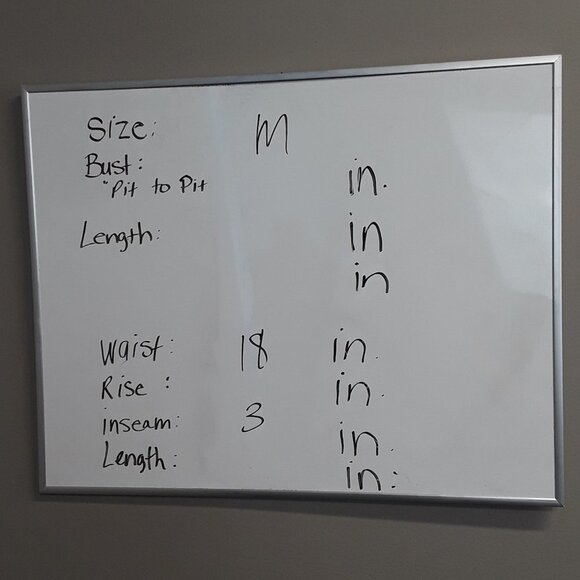 Size: M
Bust: in.
"Pit to Pit
Length: in
in
Waist: 18 in.
Rise: in.
inseam: 3 in.
Length: in: